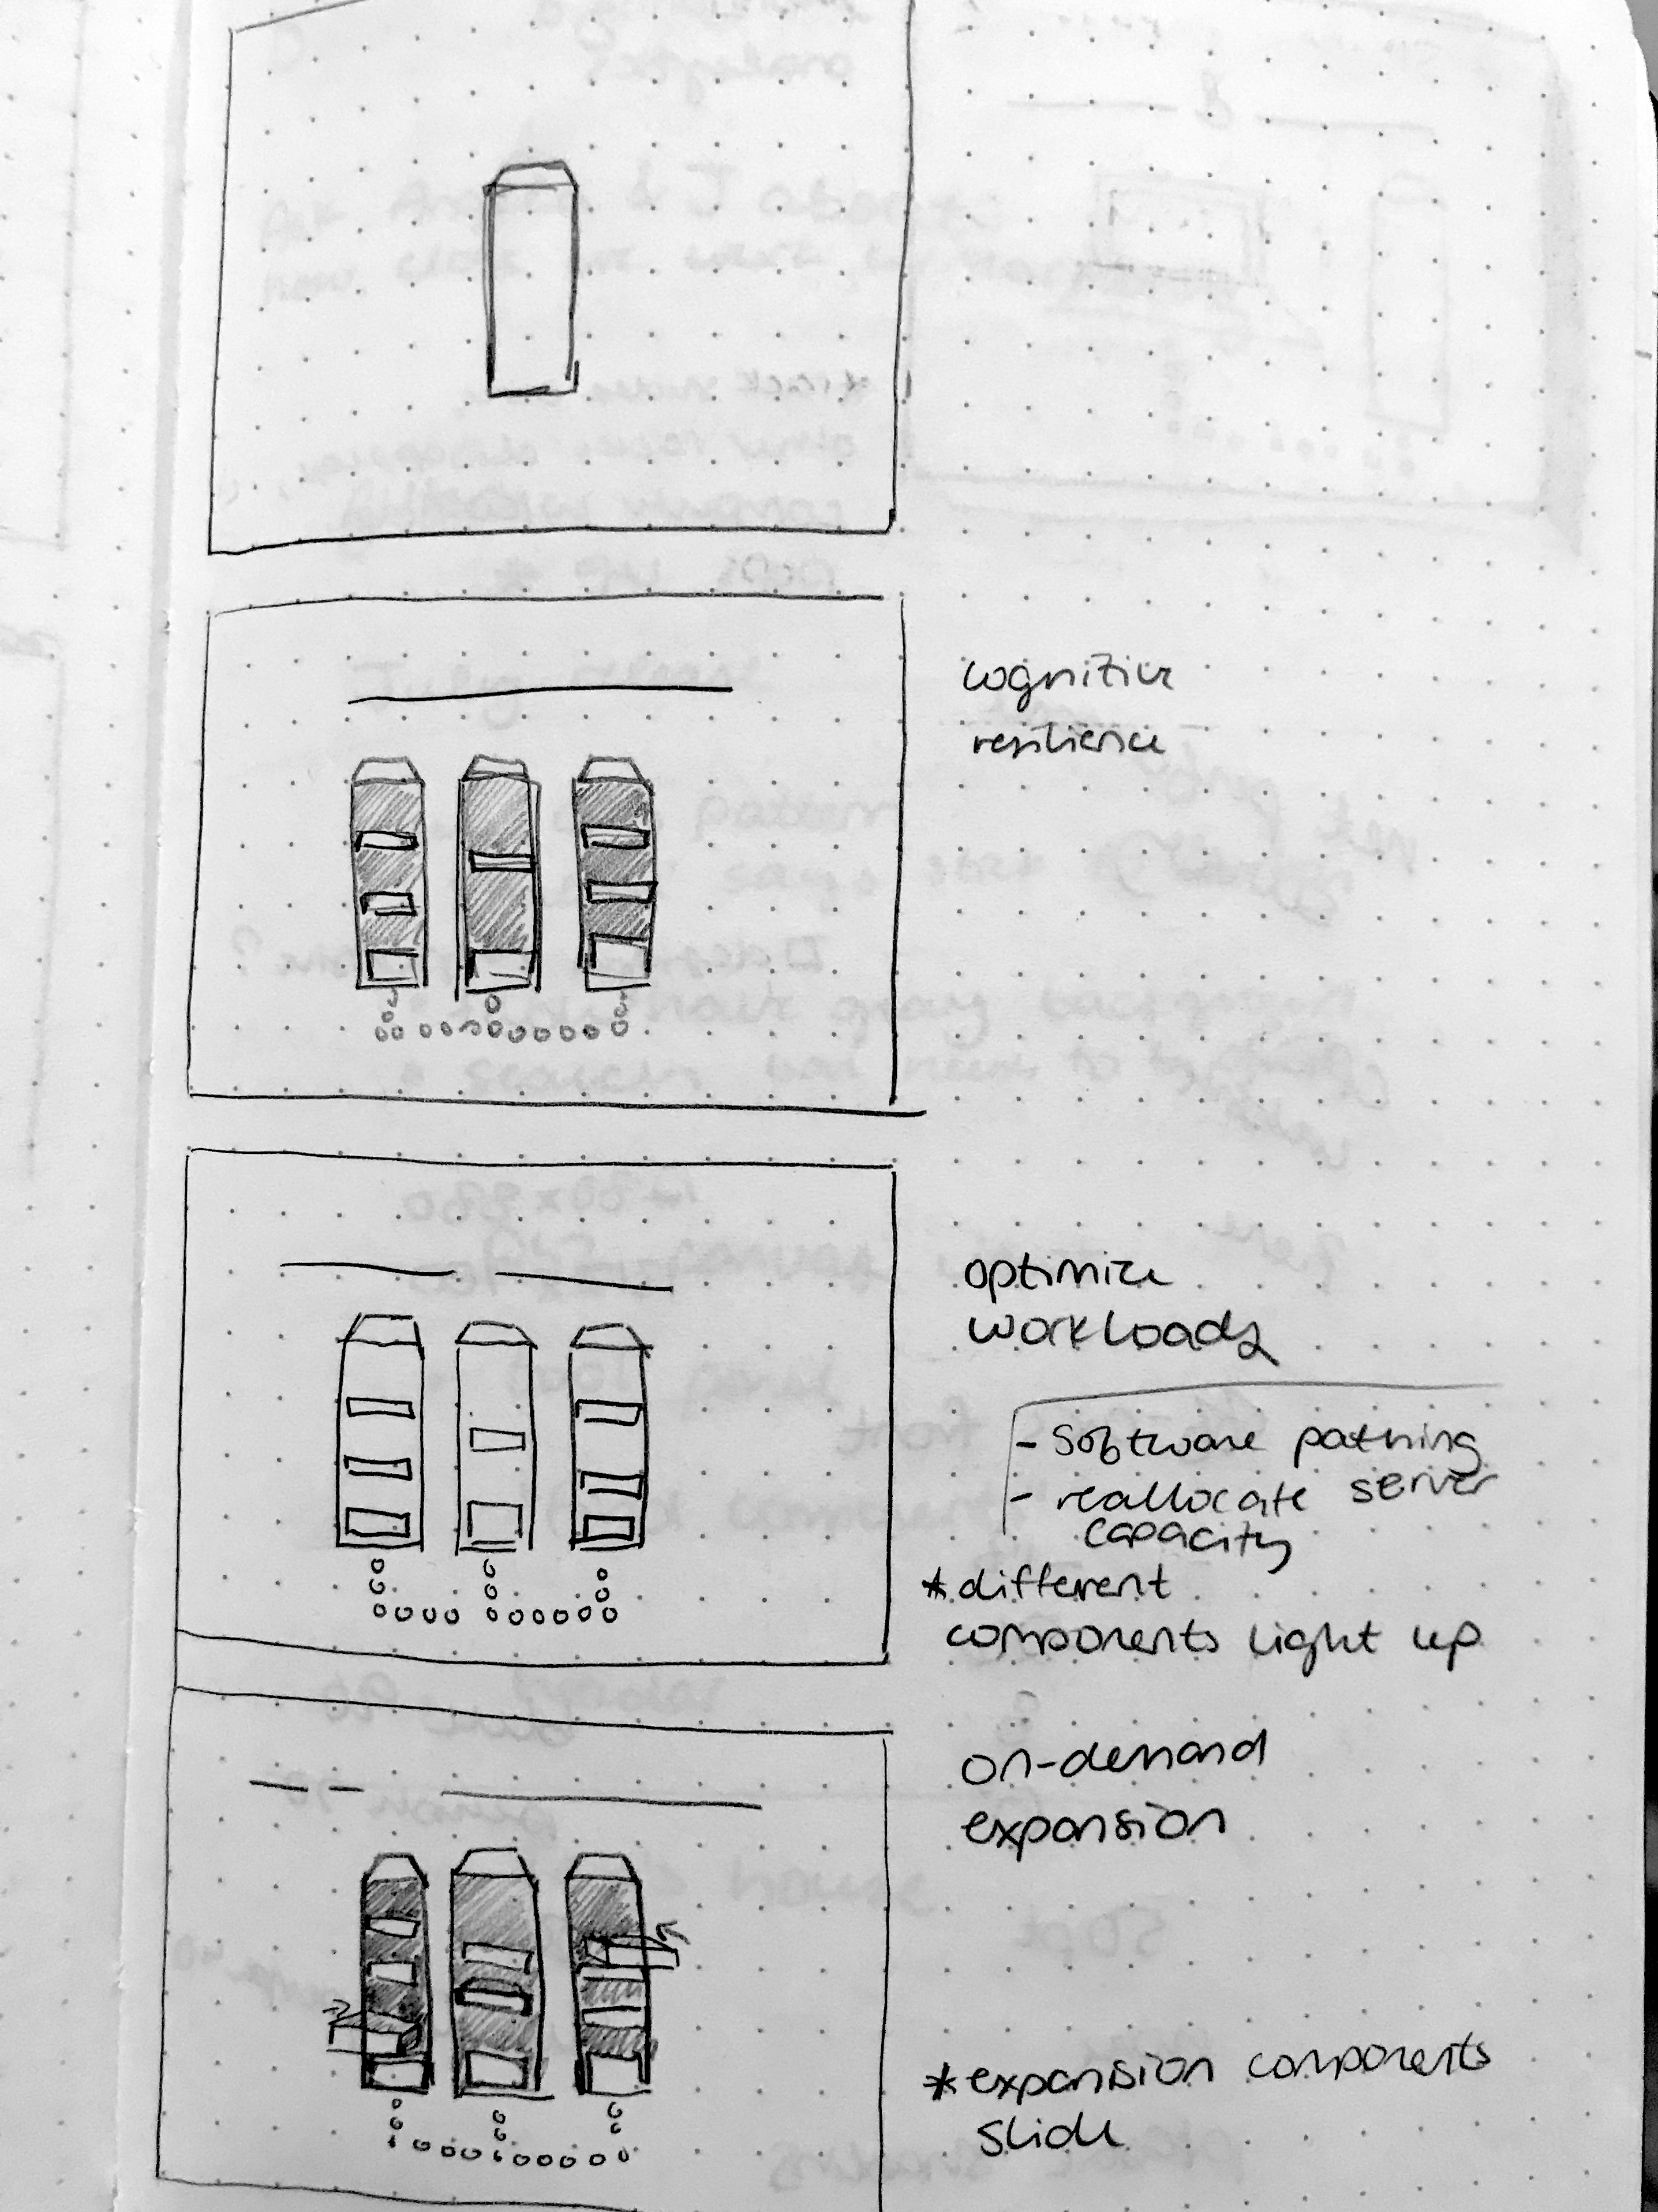 cognitive
resilience
optimize
workloads
- software pathing
- reallocate server
capacity
* different
components light up
on-demand
expansion
* expansion components
slide